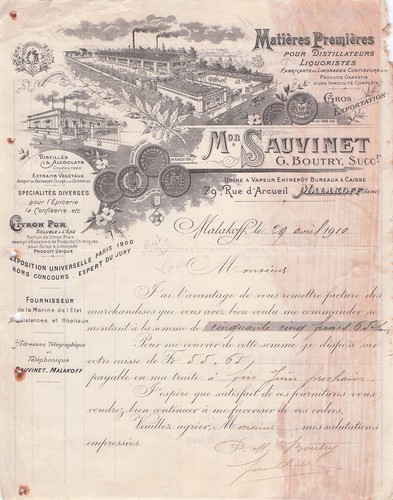 Matières Premières
POUR DISTILLATEURS
LIQUORISTES
FABRICANTS DE LIMONADES CONFISEURS etc.
PRODUITS GARANTIS
D'UNE INNOCUITÉ COMPLÈTE
GROS
EXPORTATION
Mon SAUVINET
G. BOUTRY, Succr
USINE A VAPEUR ENTREPÔT BUREAUX & CAISSE
79, Rue d'Arcueil MALAKOFF (Seine)
DISTILLÉS
ALCOOLATS
CONCENTRÉS
EXTRAITS VÉGÉTAUX
SPÉCIALITÉS DIVERSES
pour l'Épicerie
la Confiserie, etc
CITRON PUR
SOLUBLE A L'EAU
PRODUIT UNIQUE
EXPOSITION UNIVERSELLE PARIS 1900
HORS CONCOURS EXPERT DU JURY
FOURNISSEUR
de la Marine de l'État
Assistances et Hôpitaux
Adresses Télégraphique
et
Téléphonique
SAUVINET, MALAKOFF
Malakoff, le 29 avril 1910
Monsieur
J'ai l'avantage de vous remettre facture des
marchandises que vous avez bien voulu me commander se
montant à la somme de cinquante cinq francs 65
Pour me couvrir de cette somme je dispose sur
votre caisse de Fr 55.65
payable en ma traite à fin Juin prochain.
J'espère que satisfait de ces fournitures vous
voudrez bien continuer à me favoriser de vos ordres.
Veuillez agréer, Monsieur, mes salutations
empressées.
Boutry